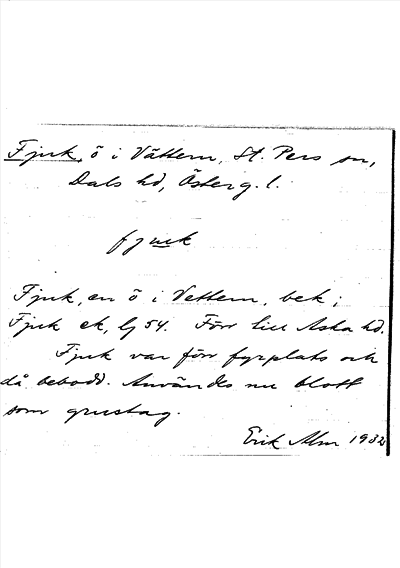 Fjuk, ö i Vättern, St. Pers sn,
Dals hd, Österg. l.
fjuk
Fjuk, en ö i Vettern, bek;
Fjuk ek, lj 54. Förr till Aska hd.
Fjuk var förr fyrplats och
då bebodd. Användes nu blott
som grustag.
Erik Alm 1932